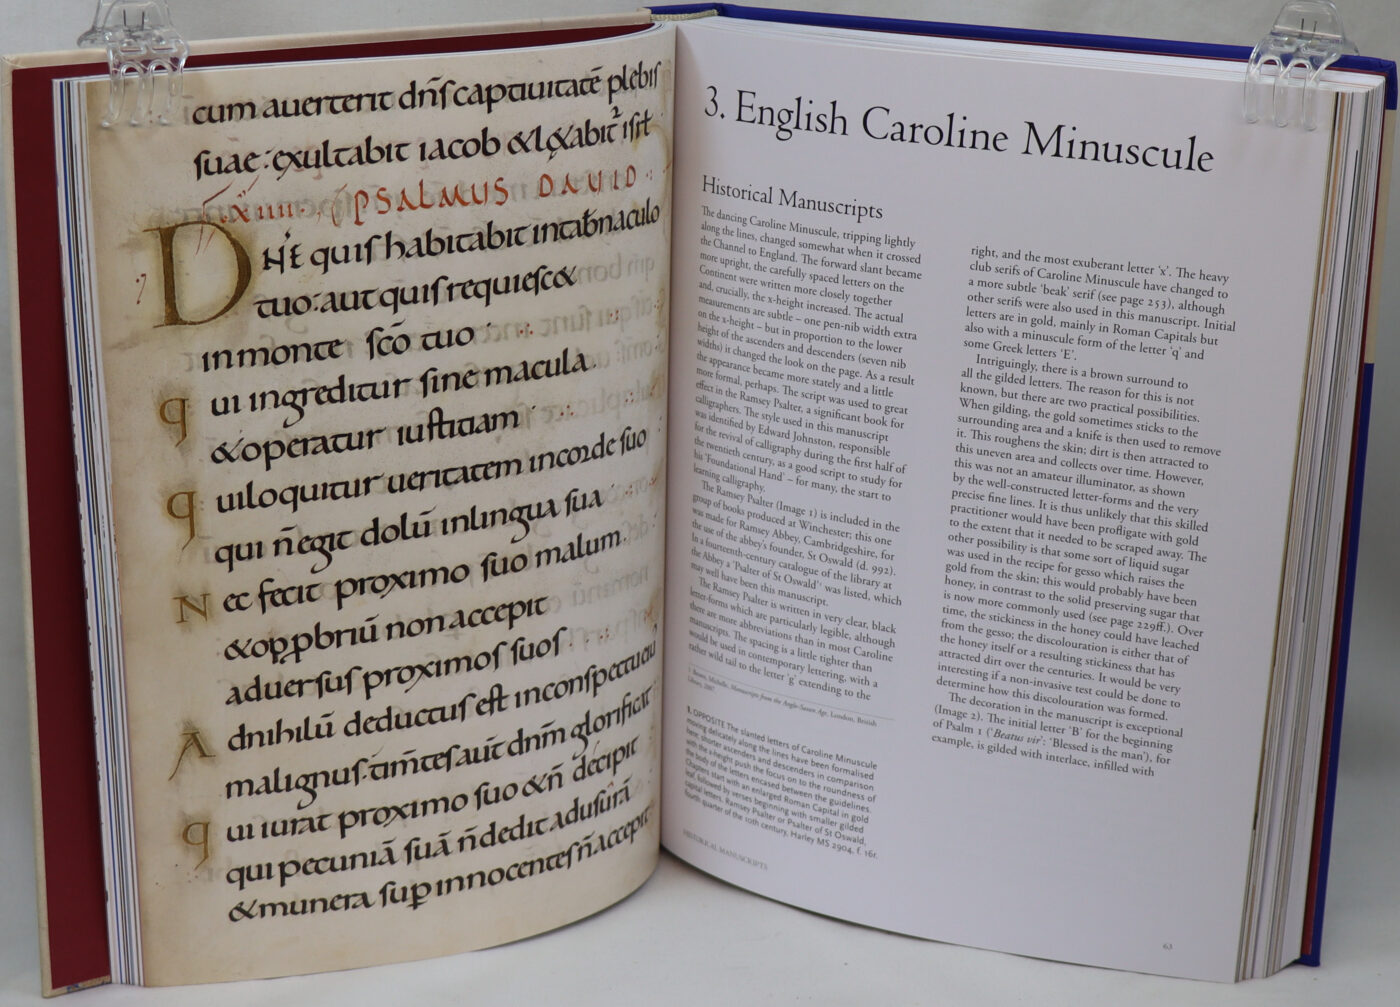 cum auerterit dñs captiuitatē plebis
suae: exultabit iacob & l&abit isrł
xiiii. PSALMUS DAUID
DNE quis habitabit in tabnaculo
tuo: aut quis requiesc&
in monte sc̄o tuo
qui ingreditur sine macula.
& operatur iustitiam
qui loquitur ueritatem in corde suo
qui n̄ egit dolū in lingua sua
Nec fecit proximo suo malum.
& opp̱briū non accepit
aduersus proximos suos
Adnihilū deductus est in conspectu eiu
malignus. timtes aut dnm̄ glorificat
qui iurat proximo suo & n̄ decipit
qui pecuniā suā n̄ dedit ad usurā
& munera sup innocentes n̄ accepit
3. English Caroline Minuscule
Historical Manuscripts
The dancing Caroline Minuscule, tripping lightly
along the lines, changed somewhat when it crossed
the Channel to England. The forward slant became
more upright, the carefully spaced letters on the
Continent were written more closely together
and, crucially, the x-height increased. The actual
measurements are subtle – one pen-nib width extra
on the x-height – but in proportion to the lower
height of the ascenders and descenders (seven nib
widths) it changed the look on the page. As a result
the appearance became more stately and a little
more formal, perhaps. The script was used to great
effect in the Ramsey Psalter, a significant book for
calligraphers. The style used in this manuscript
was identified by Edward Johnston, responsible
for the revival of calligraphy during the first half of
the twentieth century, as a good script to study for
his 'Foundational Hand' – for many, the start to
learning calligraphy.
The Ramsey Psalter (Image 1) is included in the
group of books produced at Winchester; this one
was made for Ramsey Abbey, Cambridgeshire, for
the use of the abbey's founder, St Oswald (d. 992).
In a fourteenth-century catalogue of the library at
the Abbey a 'Psalter of St Oswald'¹ was listed, which
may well have been this manuscript.
The Ramsey Psalter is written in very clear, black
letter-forms which are particularly legible, although
there are more abbreviations than in most Caroline
manuscripts. The spacing is a little tighter than
would be used in contemporary lettering, with a
rather wild tail to the letter 'g' extending to the
1 Brown, Michelle, Manuscripts from the Anglo-Saxon Age, London, British
Library, 2007
1. OPPOSITE The slanted letters of Caroline Minuscule
moving delicately along the lines have been formalised
here: shorter ascenders and descenders in comparison
with the x-height push the focus on to the roundness of
the body of the letters encased between the guidelines.
Chapters start with an enlarged Roman Capital in gold
leaf, followed by verses beginning with smaller gilded
capital letters. Ramsey Psalter or Psalter of St Oswald,
fourth quarter of the 10th century, Harley MS 2904, f. 16r.
HISTORICAL MANUSCRIPTS
right, and the most exuberant letter 'x'. The heavy
club serifs of Caroline Minuscule have changed to
a more subtle 'beak' serif (see page 253), although
other serifs were also used in this manuscript. Initial
letters are in gold, mainly in Roman Capitals but
also with a minuscule form of the letter 'q' and
some Greek letters 'E'.
Intriguingly, there is a brown surround to
all the gilded letters. The reason for this is not
known, but there are two practical possibilities.
When gilding, the gold sometimes sticks to the
surrounding area and a knife is then used to remove
it. This roughens the skin; dirt is then attracted to
this uneven area and collects over time. However,
this was not an amateur illuminator, as shown
by the well-constructed letter-forms and the very
precise fine lines. It is thus unlikely that this skilled
practitioner would have been profligate with gold
to the extent that it needed to be scraped away. The
other possibility is that some sort of liquid sugar
was used in the recipe for gesso which raises the
gold from the skin; this would probably have been
honey, in contrast to the solid preserving sugar that
is now more commonly used (see page 229ff.). Over
time, the stickiness in the honey could have leached
from the gesso; the discolouration is either that of
the honey itself or a resulting stickiness that has
attracted dirt over the centuries. It would be very
interesting if a non-invasive test could be done to
determine how this discolouration was formed.
The decoration in the manuscript is exceptional
(Image 2). The initial letter 'B' for the beginning
of Psalm 1 ('Beatus vir': 'Blessed is the man'), for
example, is gilded with interlace, infilled with
63